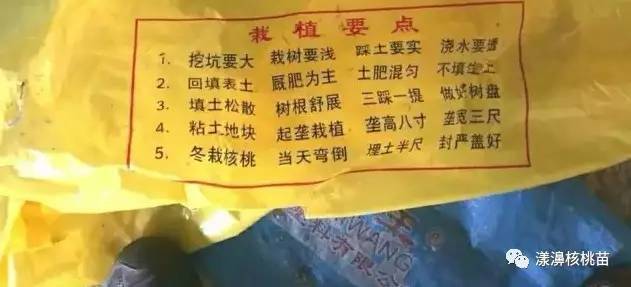 栽植要点
1. 挖坑要大 栽树要浅 踩土要实 浇水要
2. 回填表土 厩肥为主 土肥混匀 不填生土
3. 填土松散 树根舒展 三踩一提 做好树盘
4. 粘土地块 起垄栽植 垄高八寸 垄宽三尺
5. 冬栽核桃 当天弯倒 埋土半尺 封严盖好
WANG
料有限公
漾濞核桃苗